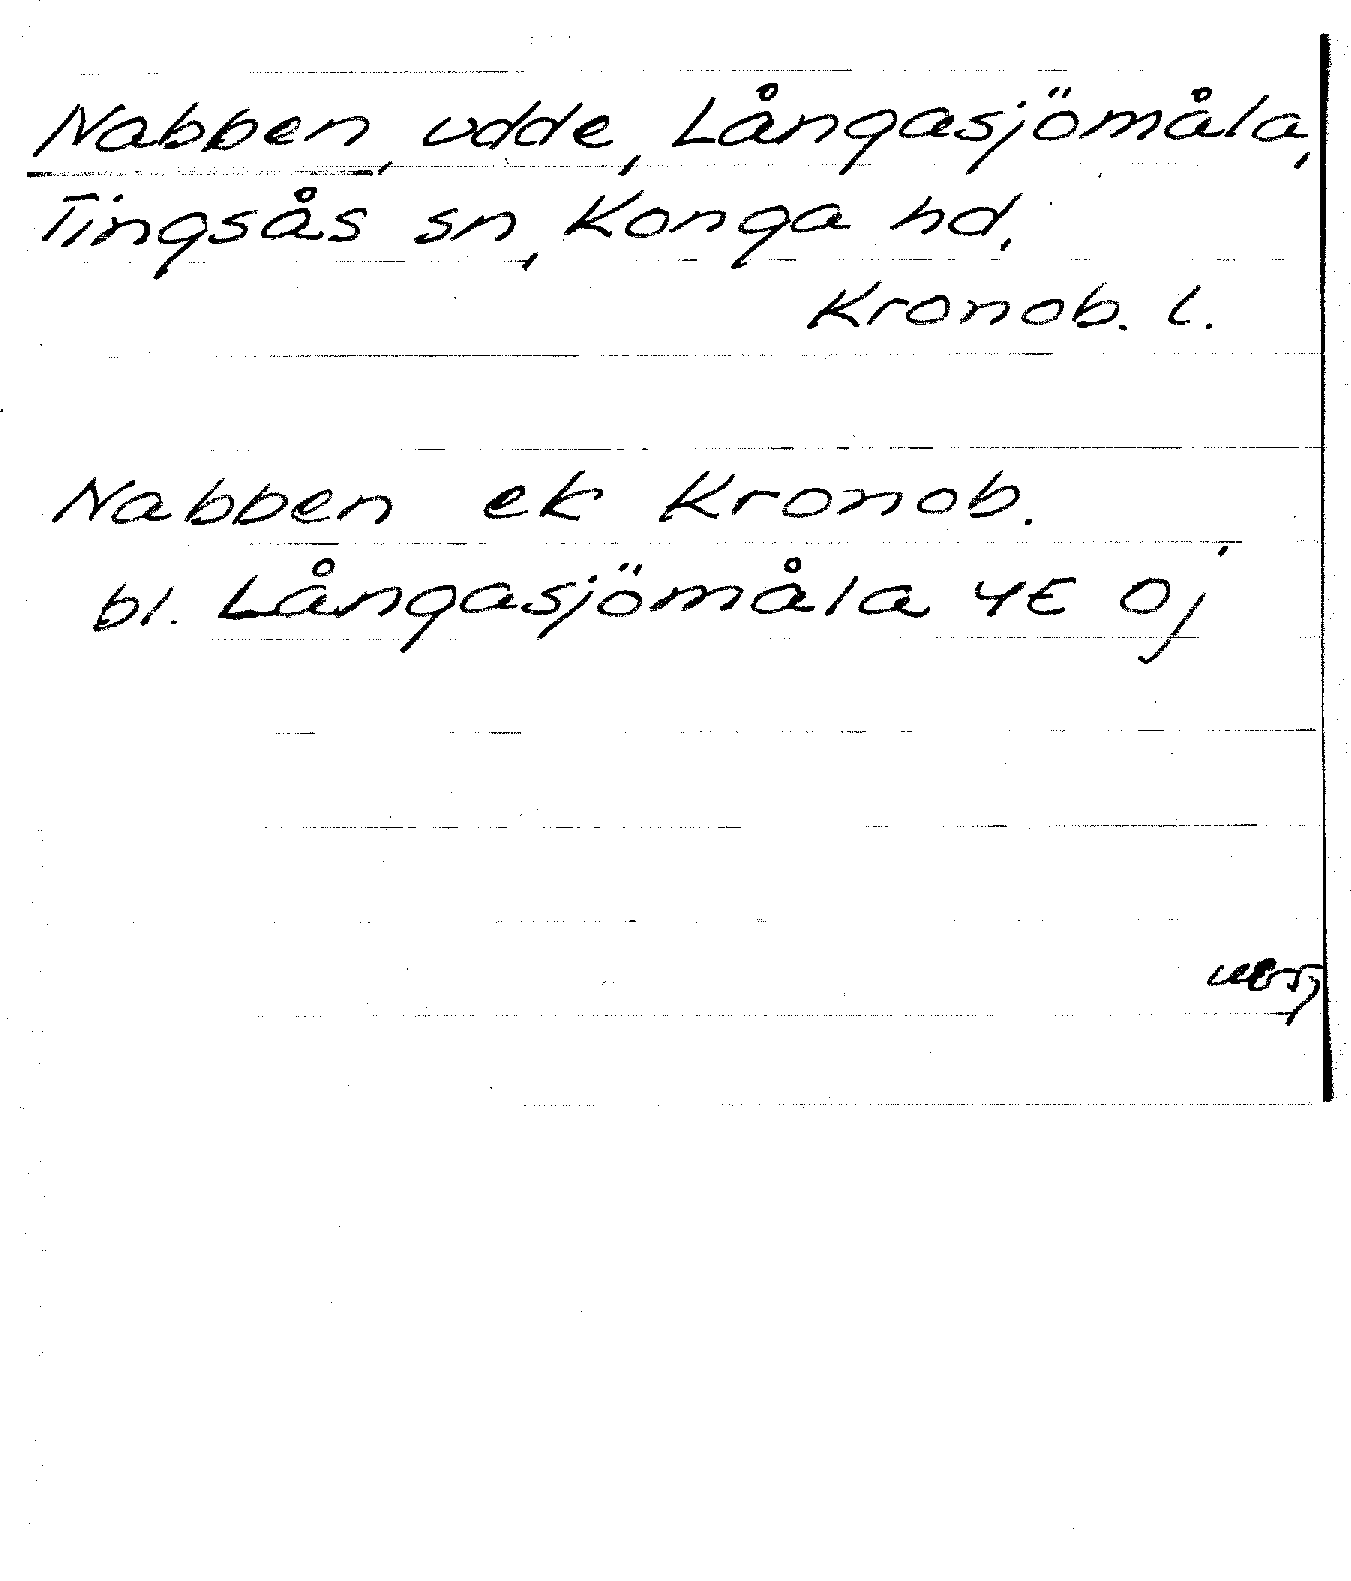 Nabben, udde, Långasjömåla,
Tingsås sn, Konga hd,
Kronob. l.
Nabben ek Kronob.
bl. Långasjömåla 4E 0j